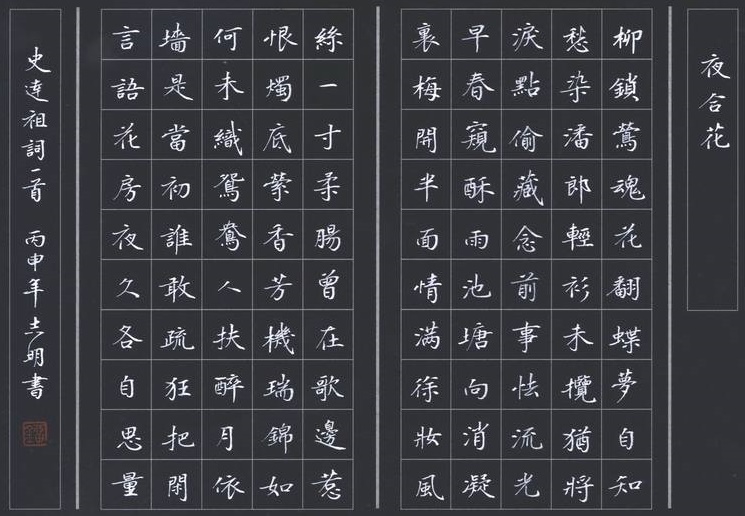 夜合花
柳鎖鶯魂花翻蝶夢自知
愁染潘郎輕衫未攬猶將
淚點偷藏念前事怯流光
早春窺酥雨池塘向消凝
裏梅開半面情滿徐妝風
絲一寸柔腸曾在歌邊惹
恨燭底縈香芳機瑞錦如
何未織鴛鴦人扶醉月依
墻是當初誰敢疏狂把閑
言語花房夜久各自思量
史達祖詞一首 丙申年志明書